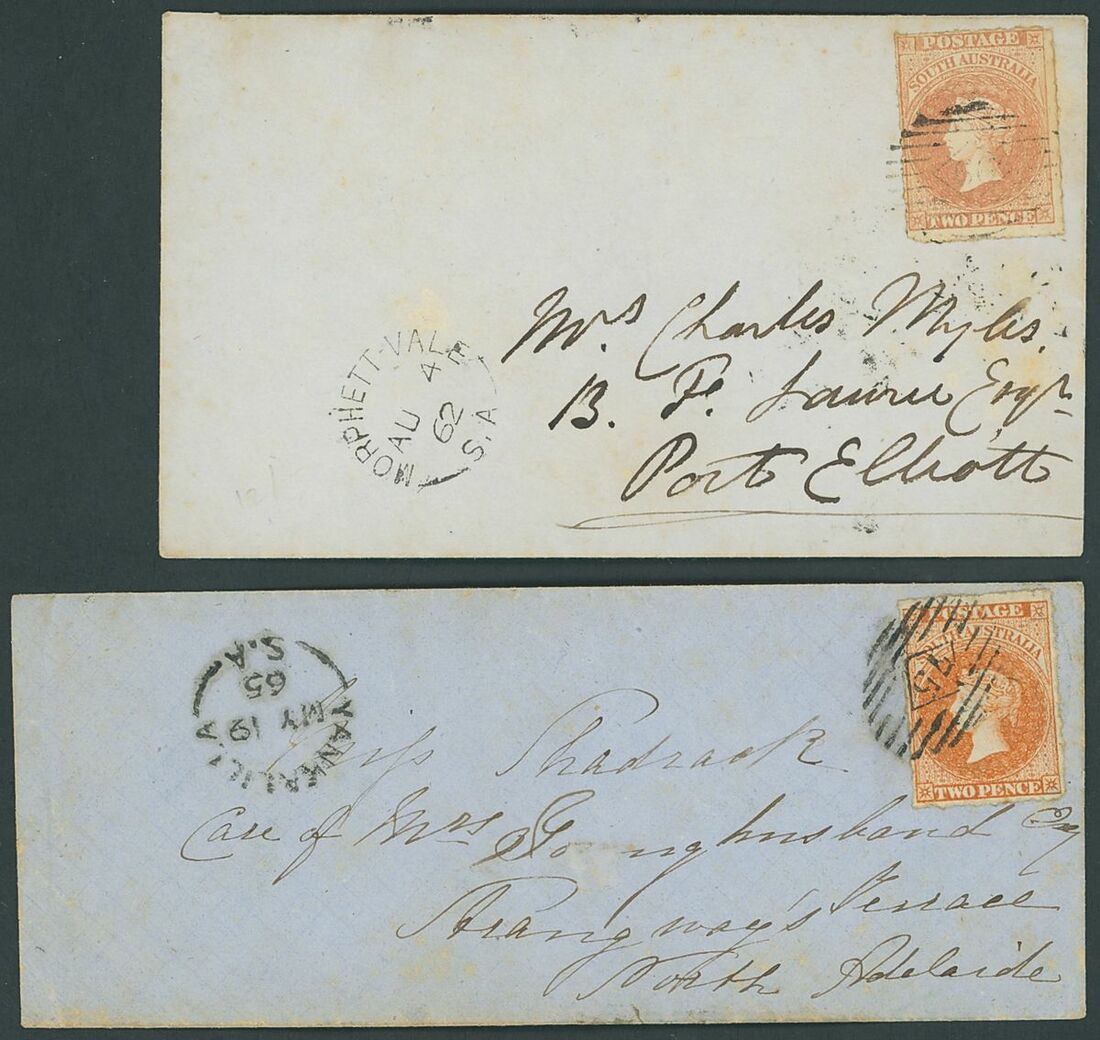 POSTAGE
SOUTH AUSTRALIA
TWO PENCE
Mrs Charles Myles,
B. F. Laurie Esqr
Port Elliott
MORPHETT-VALE
AU 4
62
S.A
POSTAGE
SOUTH AUSTRALIA
TWO PENCE
75
YANKALILLA
MY 19
65
S.A.
Miss Shadrack
Care of Mrs Younghusband Esq
Strangway's Terrace
North Adelaide